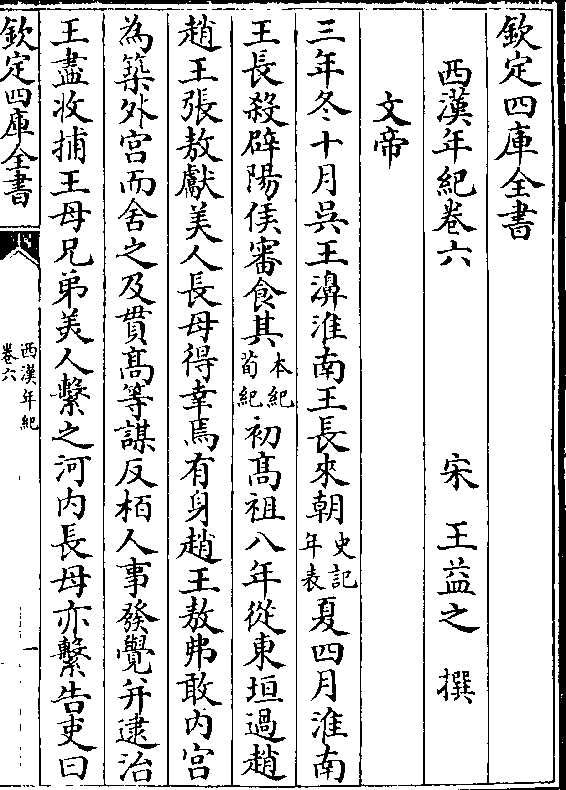 欽定四庫全書
西漢年紀卷六
宋 王益之 撰
文帝
三年冬十月吳王濞淮南王長來朝史記年表夏四月淮南
王長殺辟陽侯審食其本紀荀紀初髙祖八年從東垣過趙
趙王張敖獻美人長母得幸焉有身趙王敖弗敢内宫
為築外宫而舍之及貫髙等謀反栢人事發覺并逮治
王盡收捕王母兄弟美人繫之河内長母亦繫告吏曰
欽定四庫全書
西漢年紀
卷六
一